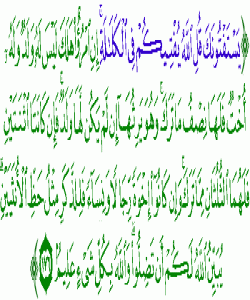 يَسْتَفْتُونَكَ قُلِ اللَّهُ يُفْتِيكُمْ فِى الْكَلَـٰلَةِ ۚ إِنِ امْرُؤٌا۟ هَلَكَ لَيْسَ لَهُۥ وَلَدٌ وَلَهُۥٓ
أُخْتٌ فَلَهَا نِصْفُ مَا تَرَكَ ۚ وَهُوَ يَرِثُهَآ إِن لَّمْ يَكُن لَّهَا وَلَدٌ ۚ فَإِن كَانَتَا اثْنَتَيْنِ
فَلَهُمَا الثُّلُثَانِ مِمَّا تَرَكَ ۚ وَإِن كَانُوٓا۟ إِخْوَةً رِّجَالًا وَنِسَآءً فَلِلذَّكَرِ مِثْلُ حَظِّ الْأُنثَيَيْنِ ۗ
يُبَيِّنُ اللَّهُ لَكُمْ أَن تَضِلُّوا۟ ۗ وَاللَّهُ بِكُلِّ شَىْءٍ عَلِيمٌۢ ﴿١٧٦﴾